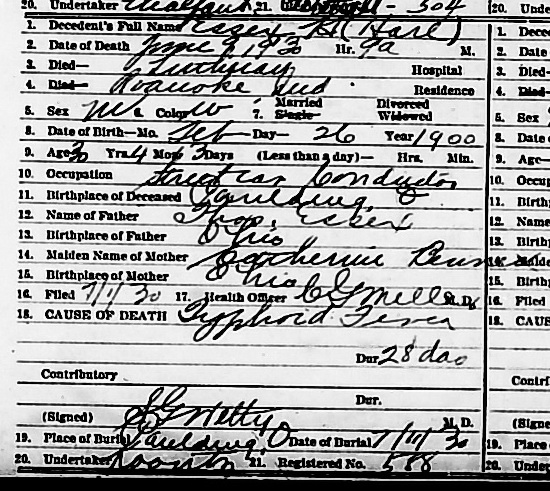 20. Undertaker 21. - 304
1. Decedent's Full Name Essex, H (Harl)
2. Date of Death June 9 1930 Hr. 9a M.
3. Died— Lutheran Hospital
4. Died— Roanoke Ind Residence
5. Sex M 6. Color W 7. Married Single Divorced Widowed
8. Date of Birth—Mo. Feb Day— 26 Year 1900
9. Age 30 Yrs. 4 Mos. 3 Days (Less than a day)— Hrs. Min.
10. Occupation Street car Conductor
11. Birthplace of Deceased Paulding, O
12. Name of Father Thos. Essex
13. Birthplace of Father Ohio
14. Maiden Name of Mother Catherine
15. Birthplace of Mother Ohio
16. Filed 7/1/30 17. Health Officer M.D.
18. CAUSE OF DEATH Typhoid Fever
Dur 28 da
Contributory
Dur.
(Signed) M.D.
19. Place of Burial Paulding, O Date of Burial 7/11/30
20. Undertaker 21. Registered No. 588
20. Unde
1. Dece
2. Date
3. Died-
4. Died-
5. Sex
8. Date
9. Age-
10. Occup
11. Birthp
12. Name
13. Birthp
14. Maide
15. Birthp
16. Filed
18. CAUS
Contri
(Signe
19. Place
20. Unde